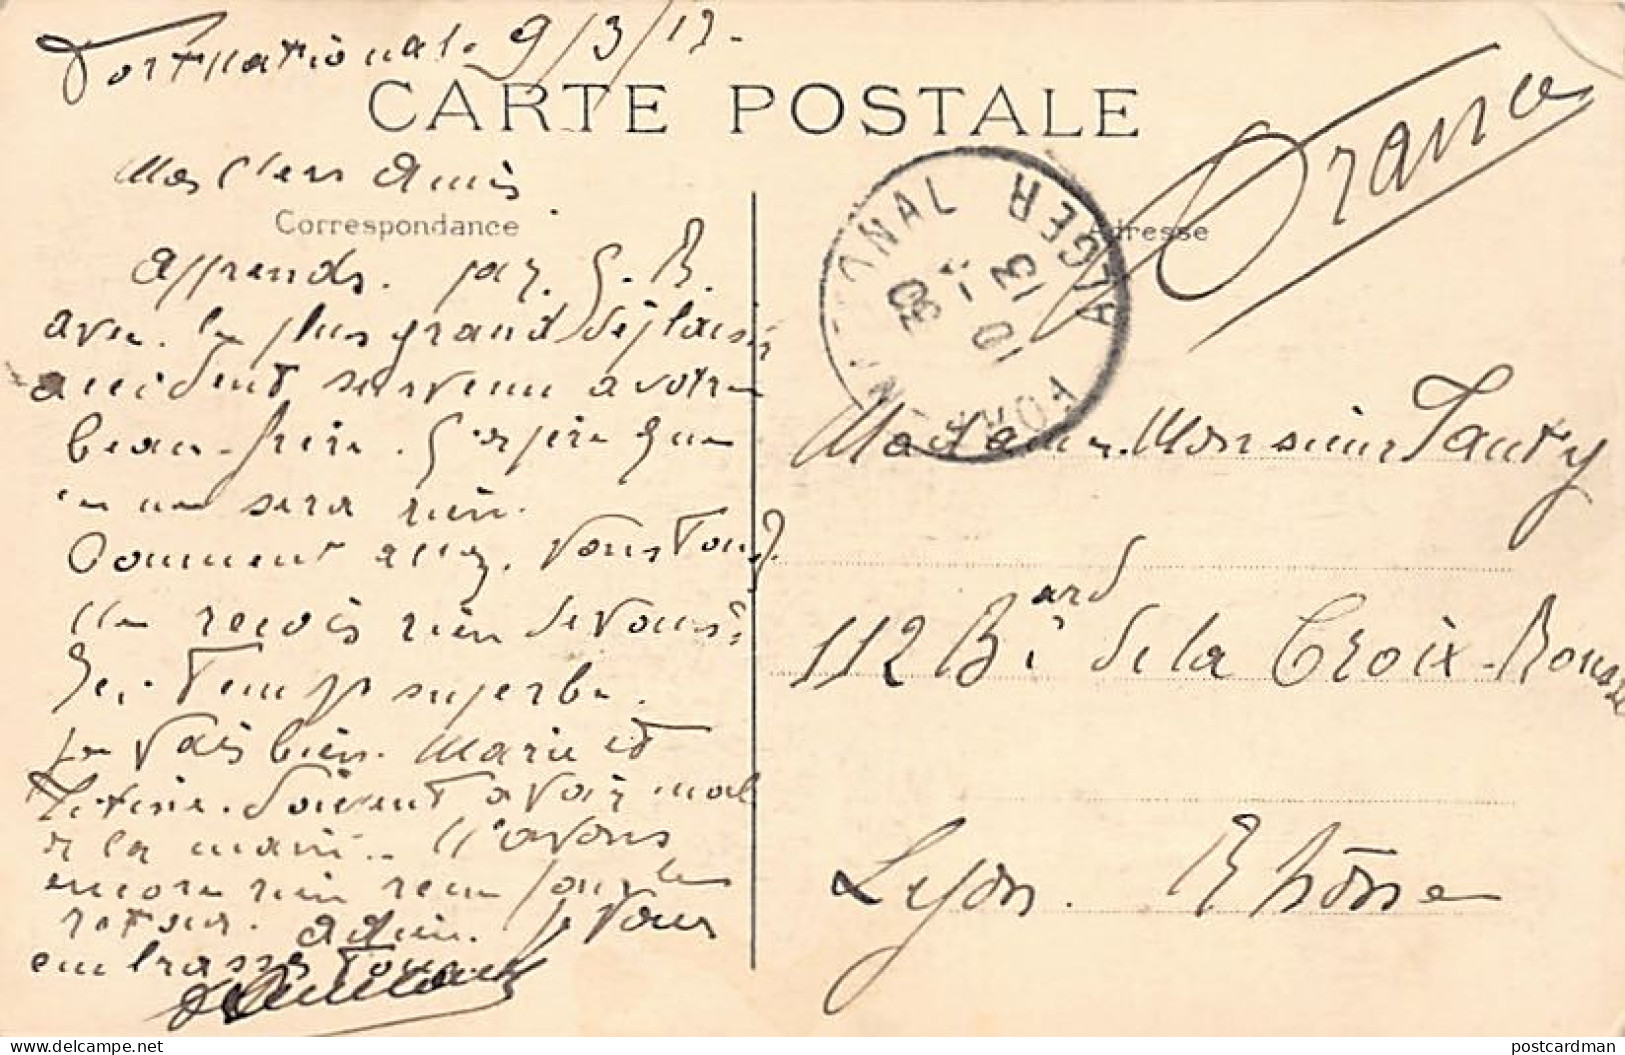 Fort national. 9/3/13.
CARTE POSTALE
France
Mes Chers Amis
Correspondance
Adresse
FORT NATIONAL ALGER
10 -3 13
apprends. par. G. B.
avec. le plus grand déplaisir
accident survenu a votre
beau-frère. J'espère que
ce ne sera rien.
Comment allez. vous tous?
Ne reçois rien de vous.
Ici. Temps superbe.
je vais bien. Marie et
doivent avoir mal
a la main. N'avons
encore rien reçu pour le
retour. adieu. Je vous
embrasse tous
Madame, Monsieur Tauty
112 Bd ard de la Croix-Rousse
Lyon. Rhône
delcampe.net
postcardman